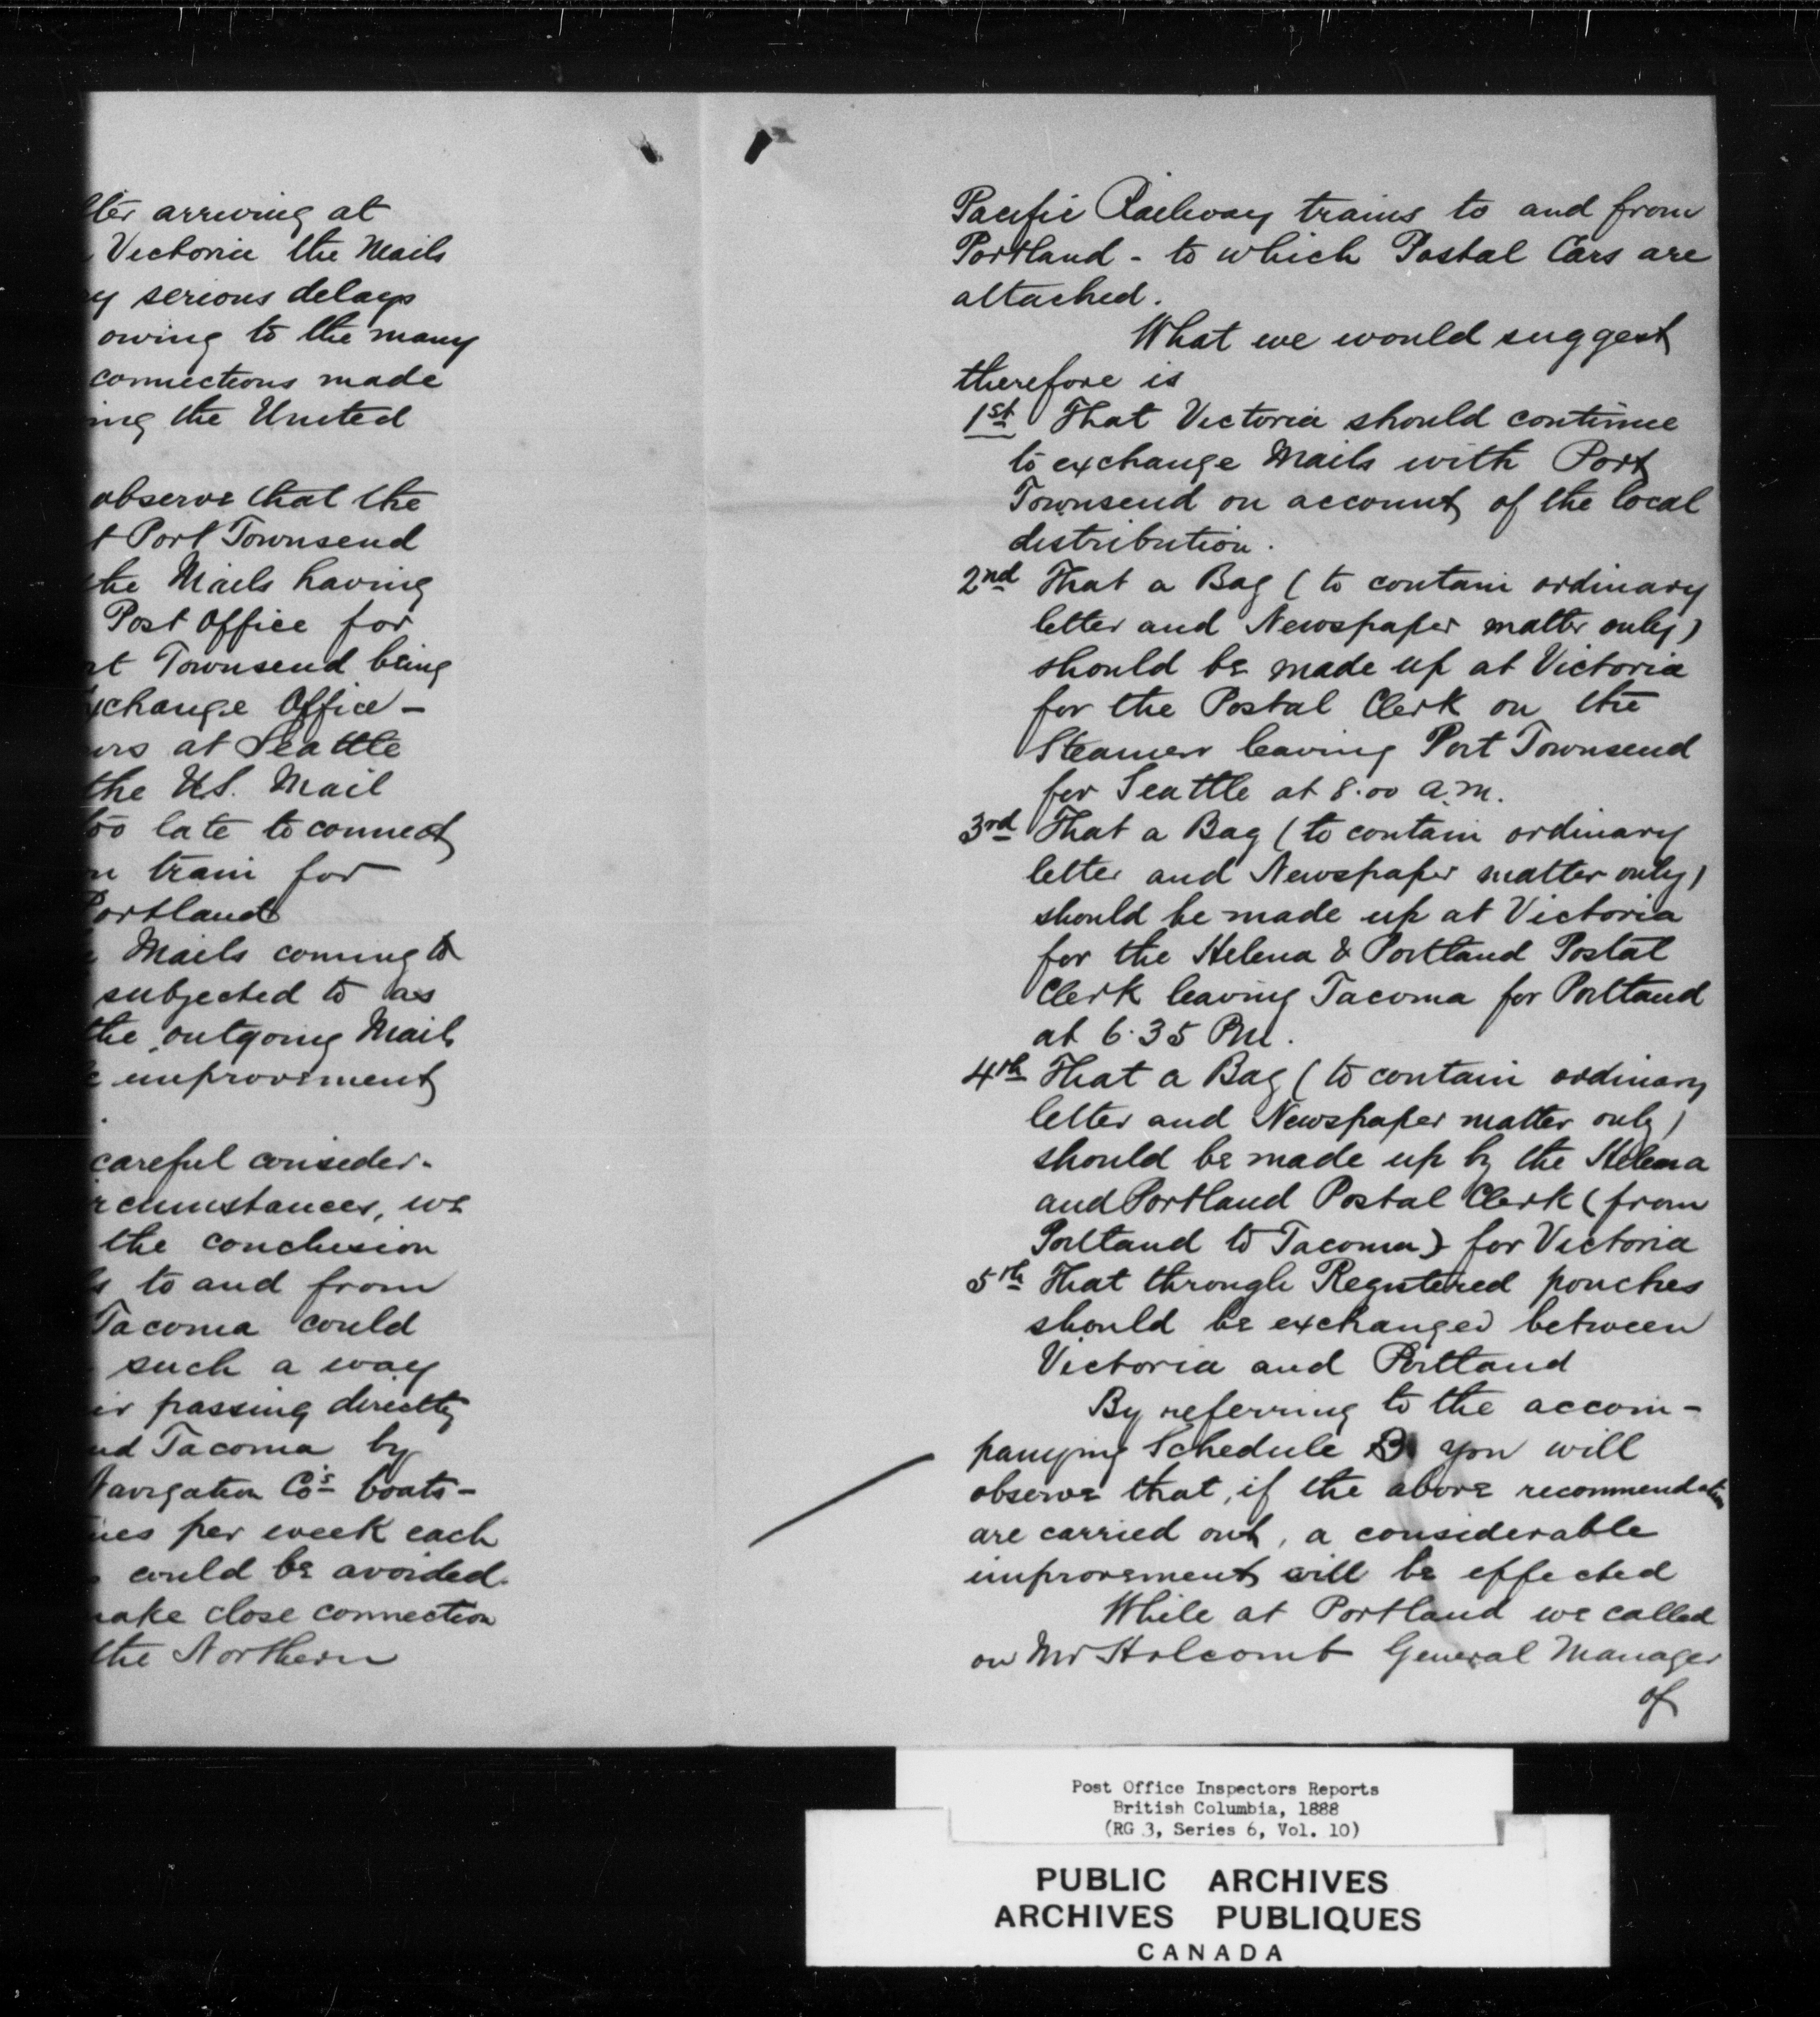 ter arriving at
Victoria the Mails
y serious delays
owing to the many
connections made
ing the United
observe that the
t Port Townsend
the Mails having
Post Office for
rt Townsend being
change Office -
urs at Seattle
the U.S. Mail
too late to connect
n train for
Portland
Mails coming to
subjected to as
the outgoing Mails
improvement
careful consider-
rcumstances, we
the conclusion
s to and from
Tacoma could
such a way
ir passing directly
nd Tacoma by
Navigation Co's boats -
mes per week each
could be avoided.
make close connection
the Northern
Pacific Railway trains to and from
Portland - to which Postal Cars are
attached.
What we would suggest
therefore is
1st That Victoria should continue
to exchange Mails with Port
Townsend on account of the local
distribution.
2nd That a Bag (to contain ordinary
letter and Newspaper matter only)
should be made up at Victoria
for the Postal Clerk on the
Steamer leaving Port Townsend
for Seattle at 8.00 a.m.
3rd That a Bag (to contain ordinary
letter and Newspaper matter only)
should be made up at Victoria
for the Helena & Portland Postal
Clerk leaving Tacoma for Portland
at 6.35 P.M.
4th That a Bag (to contain ordinary
letter and Newspaper matter only)
should be made up by the Helena
and Portland Postal Clerk (from
Portland to Tacoma) for Victoria
5th That through Registered pouches
should be exchanged between
Victoria and Portland
By referring to the accom-
panying Schedule B you will
observe that, if the above recommendations
are carried out, a considerable
improvement will be effected
While at Portland we called
on Mr Holcomb General Manager
of
Post Office Inspectors Reports
British Columbia, 1888
(RG 3, Series 6, Vol. 10)
PUBLIC ARCHIVES
ARCHIVES PUBLIQUES
CANADA